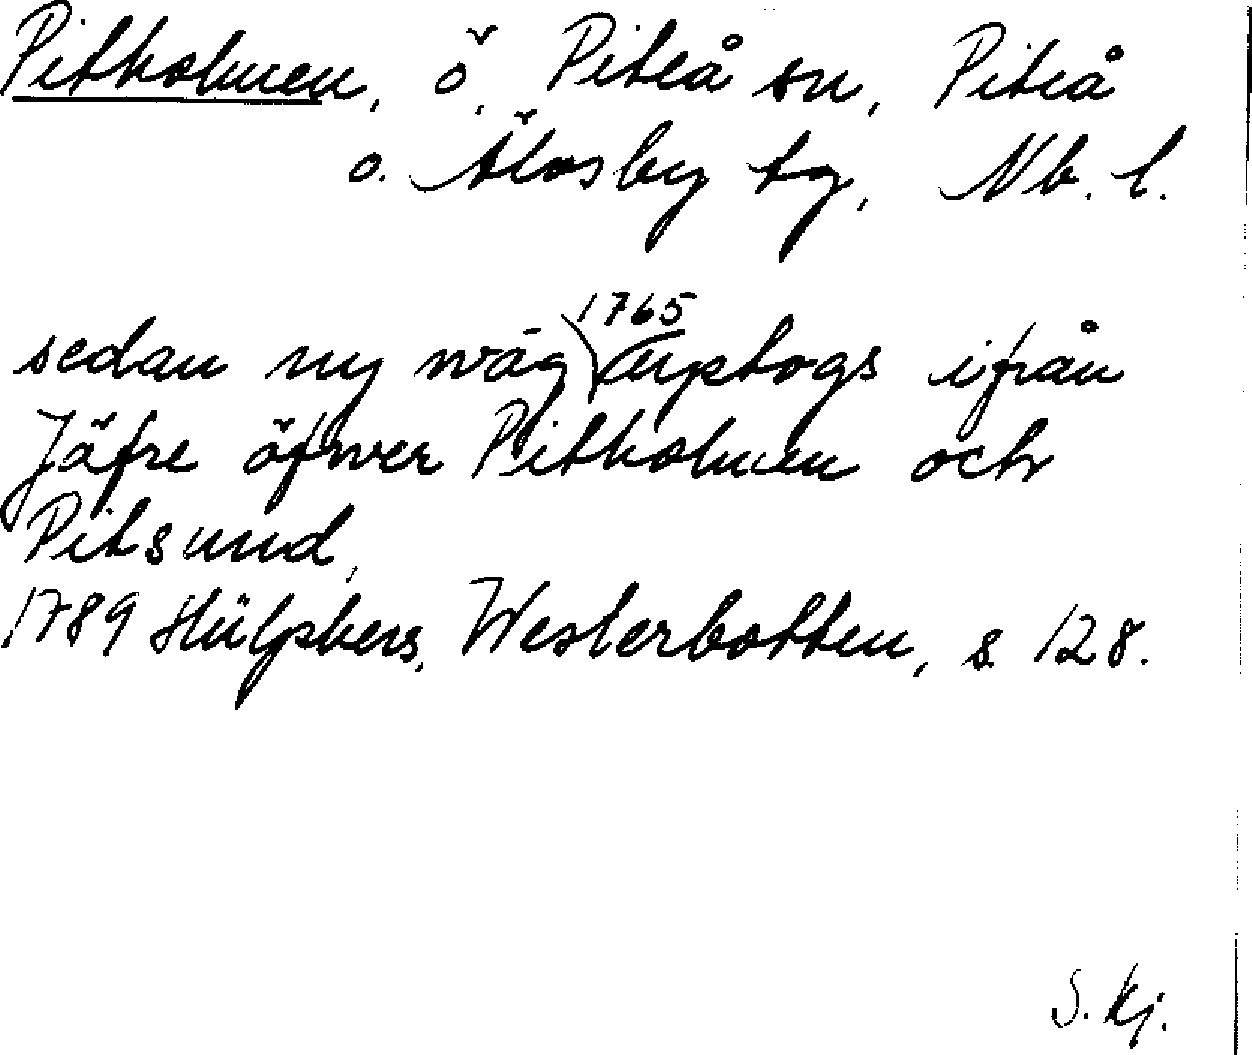 Pitholmen, ö, Piteå sn, Piteå
o. Älvsby tg, Nb. l.
sedan ny wäg 1765 upptogs ifrån
Jäfre öfwer Pitholmen och
Pitsund,
1789 Hülphers, Westerbotten, s 128.
S. Kj.